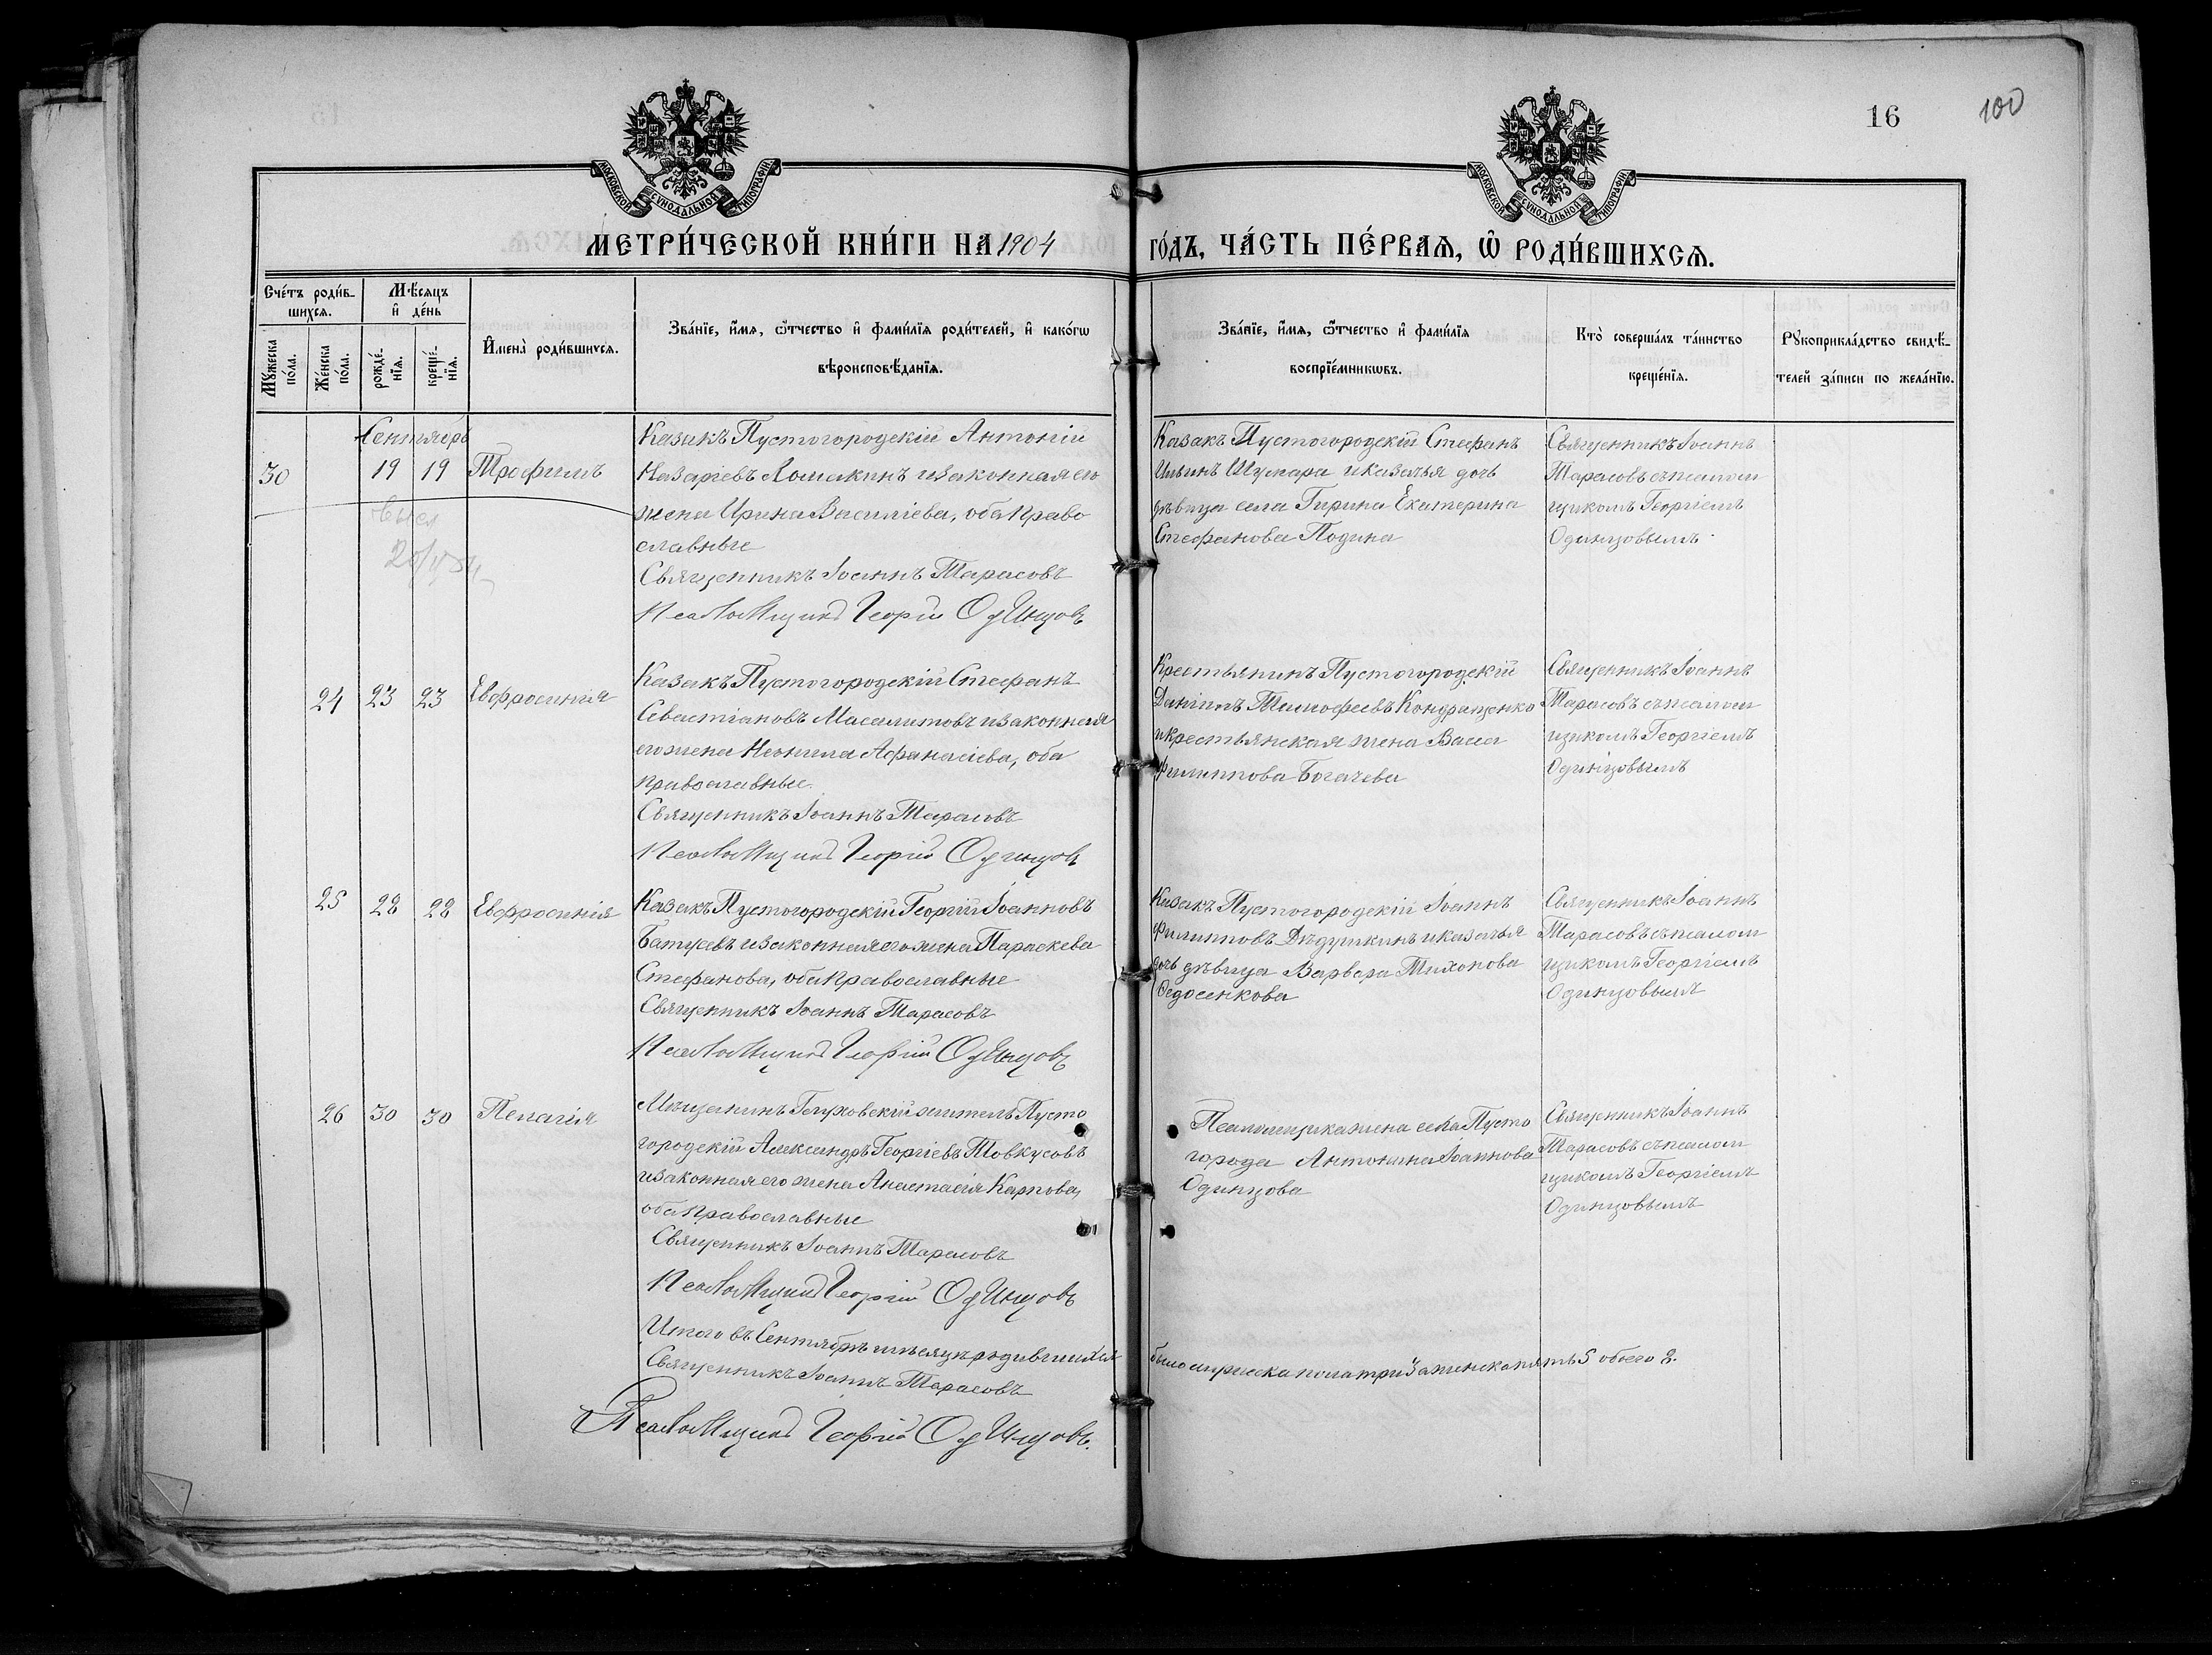 16
100
МОСКОВСКОЙ СѴНОДАЛЬНОЙ ТИПОГРАФІИ
МОСКОВСКОЙ СѴНОДАЛЬНОЙ ТИПОГРАФІИ
МЕТРИ́ЧЕСКОЙ КНИ́ГИ НА 1904
ГО́ДЪ, ЧА́СТЬ ПЕ́РВАѦ, Ѡ҆ РОДИ́ВШИХСѦ.
Сче́тъ роди́в-
шихсѧ.
Мꙋ́жеска по́ла.
Же́нска по́ла.
Мѣ́сѧцъ
и҆ де́нь
рожде́-
нїѧ.
креще́-
нїѧ.
И҆мена̀ роди́вшихсѧ.
Зва́нїе, и҆́мѧ, ѻ҆́тчество и҆ фами́лїѧ роди́телей, и҆ како́гѡ
вѣроисповѣ́данїѧ.
Зва́нїе, и҆́мѧ, ѻ҆́тчество и҆ фами́лїѧ
воспрїе́мникѡвъ.
Кто̀ соверша́лъ та́инство
креще́нїѧ.
Рꙋкоприкла́дство свидѣ́-
телей за́писи по жела́нїю.
Сентябрь
30
19 19 Трофимъ
Казакъ Пустогородскій Антоній
Назаріевъ Ломакинъ и законная его
жена Ирина Василіева, оба право
славные
Священникъ Іоаннъ Тарасовъ
Псаломщикъ Георгій Одинцовъ
Казакъ Пустогородскій Стефанъ
Ильинъ Шумара и казачья дочь
дѣвица села Гирина Екатерина
Стефанова Подина
Священникъ Іоаннъ
Тарасовъ съ псалом
щикомъ Георгіемъ
Одинцовымъ
24 23 23 Евфросинія
Казакъ Пустогородскій Стефанъ
Севастіановъ Масалитовъ и законная
его жена Неонила Афанасіева, оба
православные.
Священникъ Іоаннъ Тарасовъ
Псаломщикъ Георгій Одинцовъ
Крестьянинъ Пустогородскій
Даніилъ Тимофеевъ Кондращенко
и крестьянская жена Васса
Филиппова Богачева
Священникъ Іоаннъ
Тарасовъ съ псалом
щикомъ Георгіемъ
Одинцовымъ
25 28 28 Евфросинія
Казакъ Пустогородскій Георгій Іоанновъ
Батусевъ и законная его жена Параскева
Стефанова, оба православные
Священникъ Іоаннъ Тарасовъ
Псаломщикъ Георгій Одинцовъ
Казакъ Пустогородскій Іоаннъ
Филипповъ Дѣдушкинъ и казачья
дочь дѣвица Варвара Тихонова
Федосенкова
Священникъ Іоаннъ
Тарасовъ съ псалом
щикомъ Георгіемъ
Одинцовымъ
26 30 30 Пелагія
Мѣщанинъ Глуховскій житель Пусто
городскій Александръ Георгіевъ Товкусовъ
и законная его жена Анастасія Карпова,
оба православные
Священникъ Іоаннъ Тарасовъ
Псаломщикъ Георгій Одинцовъ
Псаломщика жена села Пусто
города Антонина Іоаннова
Одинцова
Священникъ Іоаннъ
Тарасовъ съ псалом
щикомъ Георгіемъ
Одинцовымъ
Итого въ Сентябрѣ мѣсяцѣ родившихся
было мужеска пола три 3 а женска пять 5 обоего 8.
Священникъ Іоаннъ Тарасовъ
Псаломщикъ Георгій Одинцовъ.